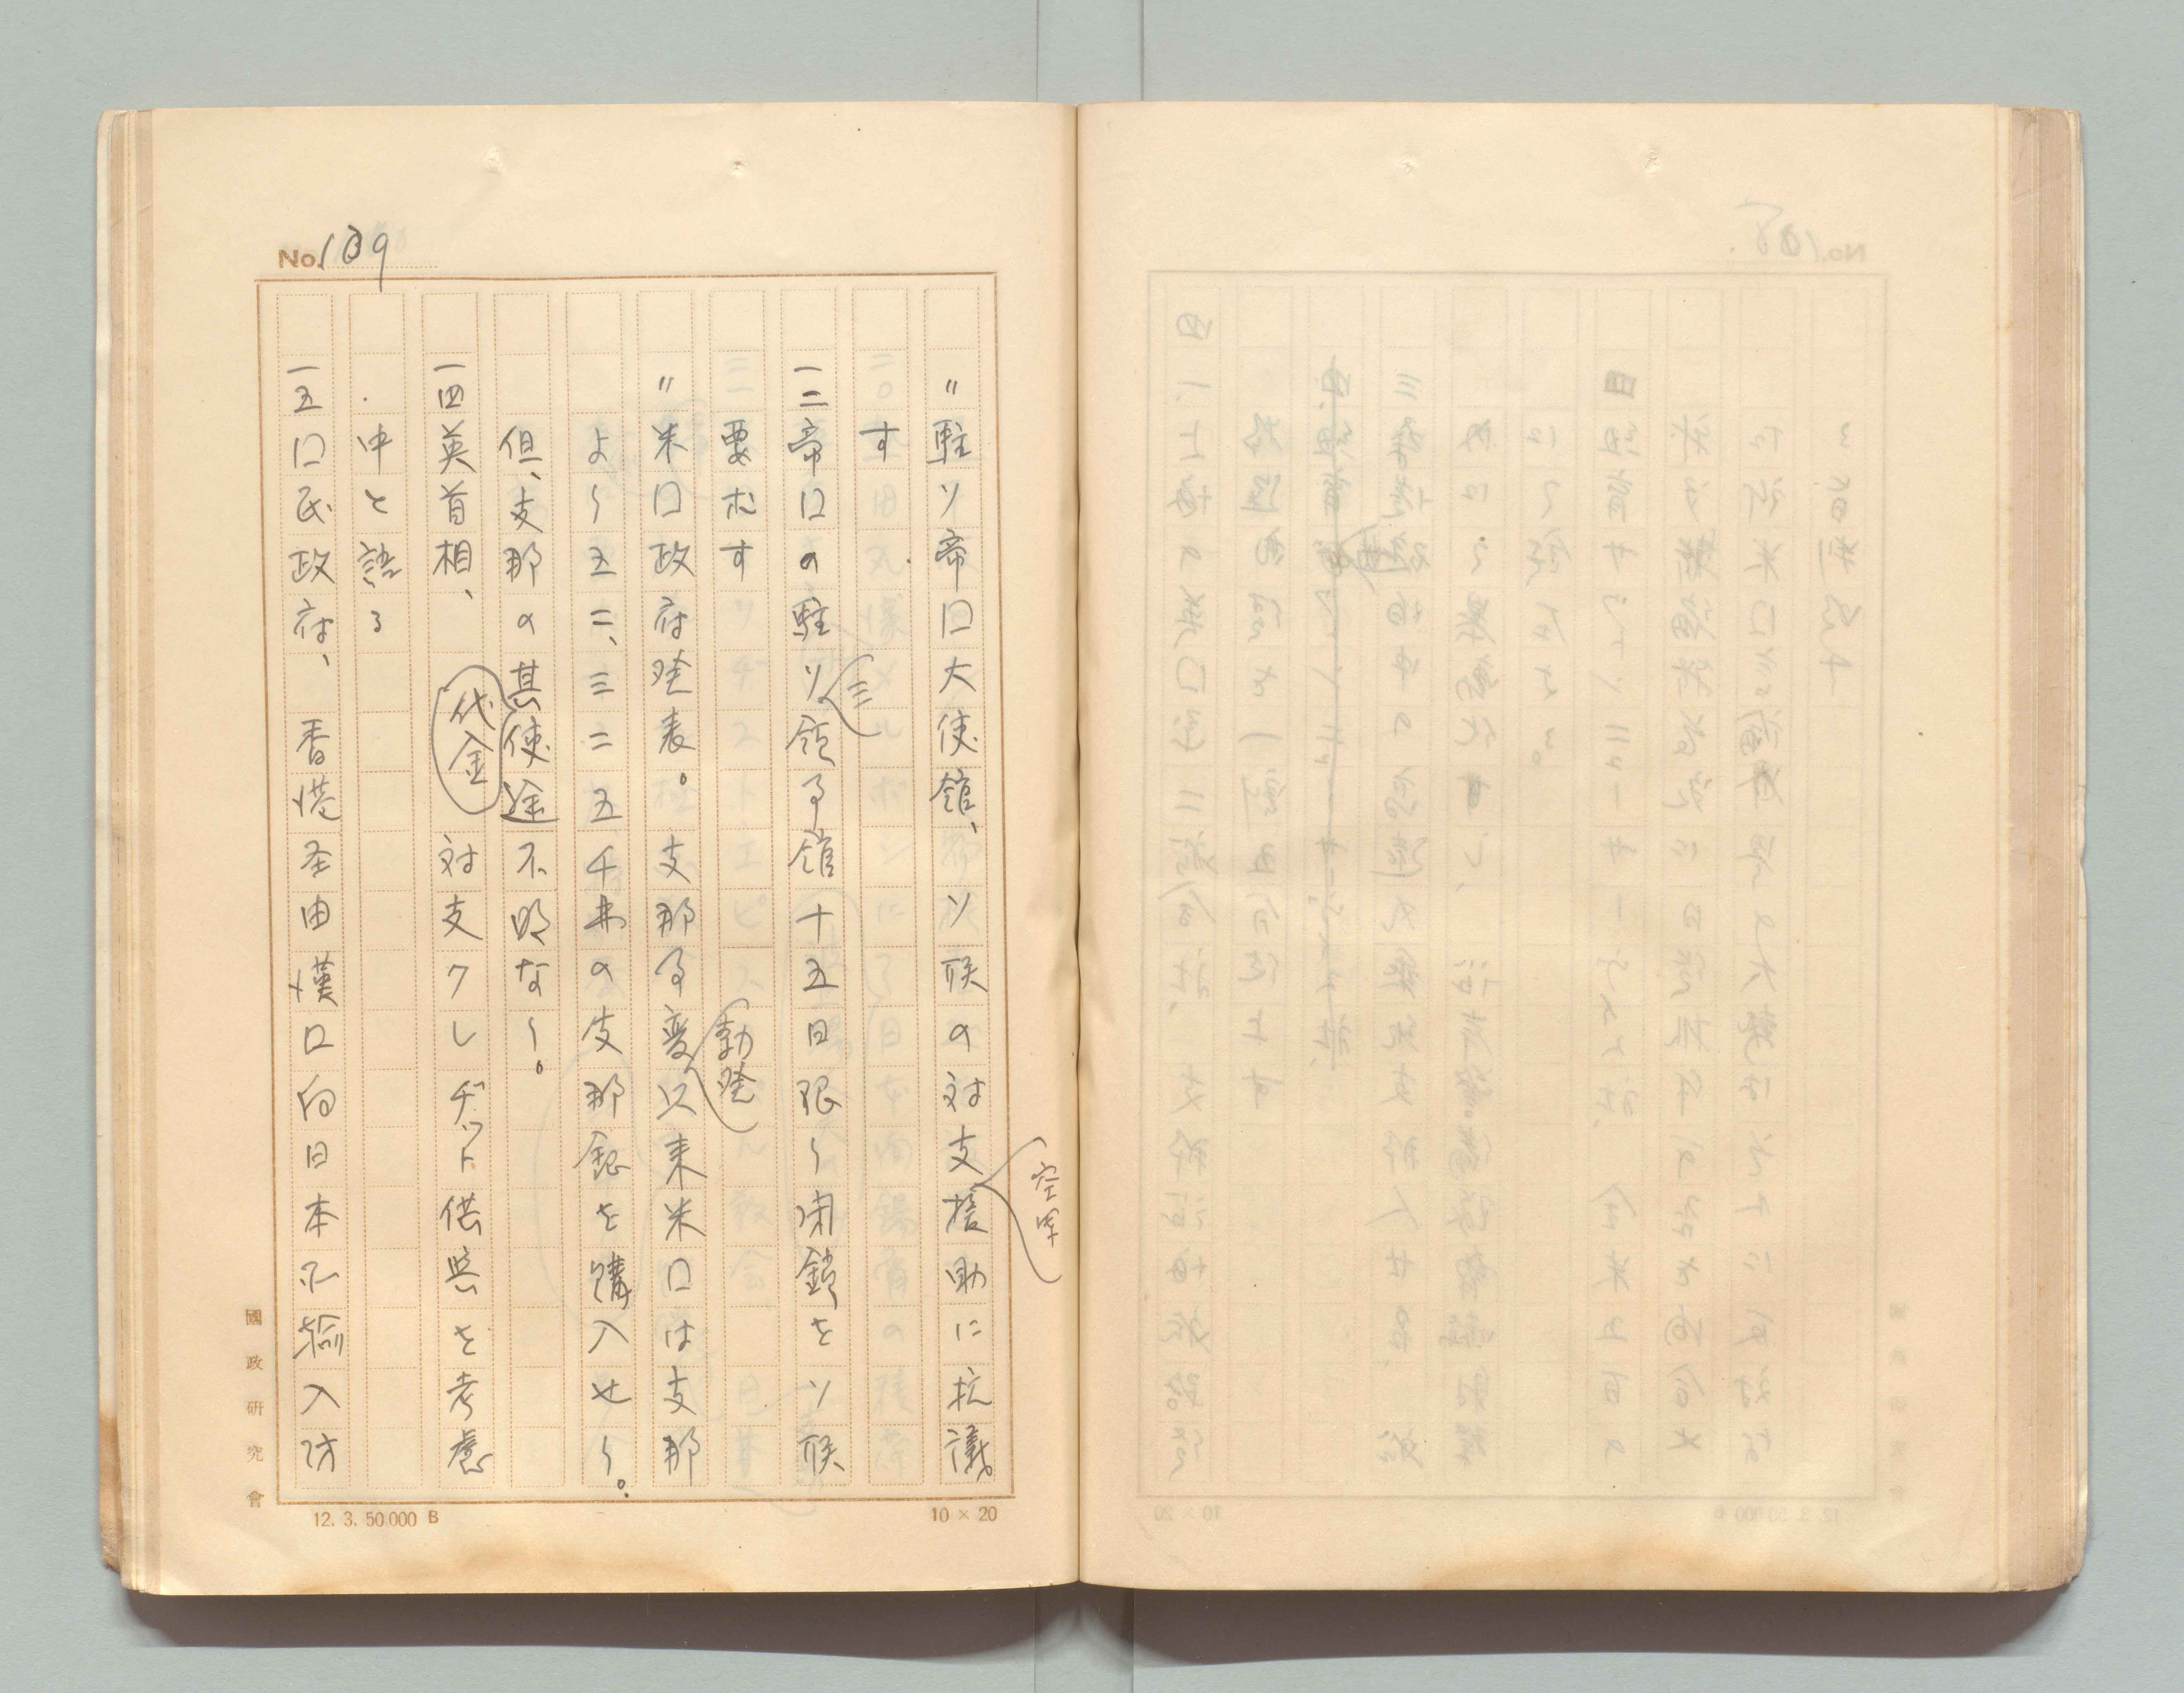 No.109
〃駐ソ帝口大使館、ソ联の対支空軍援助に抗議。
す
一二帝口の駐ソ三領事館十五日限り閉鎖をソ联
要求す
〃米口政府発表。支那事変勃発以来米口は支那
より五二、三二五千弗の支那銀を購入せり。
但、支那の其代金使途不明なり。
一四英首相、対支クレヂット供与を考慮
中と語る
一五口民政府、香港至由漢口向日本品輸入防
國政研究會
12. 3. 50.000 B
10 × 20